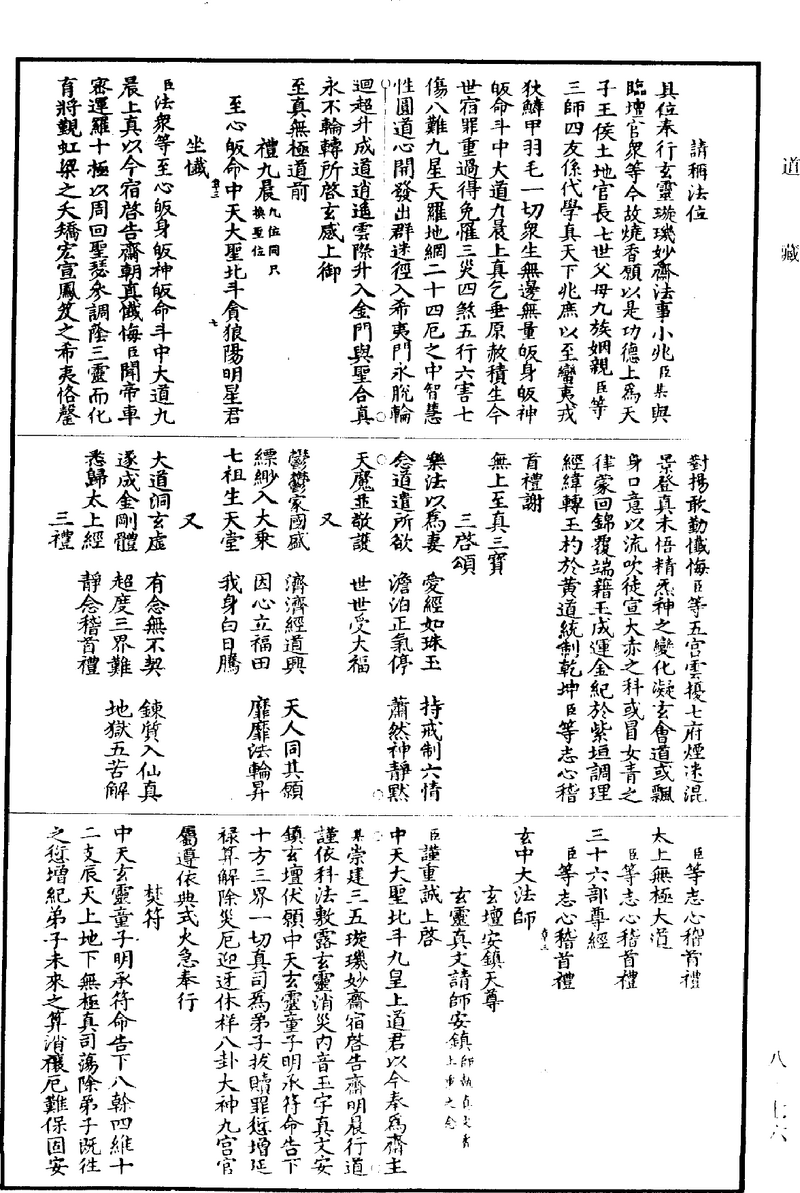 道藏
請稱法位
具位奉行玄靈璇璣妙齋法事小兆臣某與
臨壇官衆等今故燒香願以是功德上爲天
子王侯土地官長七世父母九族姻親臣等
三師四友係代學真天下兆庶以至蠻夷戎
狄鱗甲羽毛一切衆生無邊無量皈身皈神
皈命斗中大道九晨上真乞垂原赦積生今
世宿罪重過得免罹三災四煞五行六害七
傷八難九星天羅地網二十四厄之中智慧
性圓道心開發出群迷徑入希夷門永脫輪
迴超升成道逍遙雲際升入金門與聖合真
永不輪轉所啓玄感上御
至真無極道前
禮九晨九位同只換星位
至心皈命中天大聖北斗貪狼陽明星君
坐懺
臣法衆等至心皈身皈神皈命斗中大道九
晨上真以今宿啓告齋朝真懺悔臣聞帝車
密運羅十極以周回聖瑟參調蔭三靈而化
育將覲虹梁之夭矯宏宣鳳笈之希夷俻罄
對揚敢勤懺悔臣等五宫雲擾七府煙迷混
景登真未悟精炁神之變化凝玄會道或飄
身口意以流吹徒宣大赤之科或冒女青之
律蒙回錦覆端藉玉成運金紀於紫垣調理
經緯轉玉杓於黄道統制乾坤臣等志心稽
首禮謝
無上至真三寶
三啓頌
樂法以爲妻 愛經如珠玉 持戒制六情
念道遣所欲 澹泊正氣停 蕭然神靜默
天魔並敬護 世世受大福
又
鬱鬱家國盛 濟濟經道興 天人同其願
縹緲入大乘 因心立福田 靡靡法輪昇
七祖生天堂 我身白日騰
又
大道洞玄虛 有念無不契 鍊質入仙真
遂成金剛體 超度三界難 地獄五苦解
悉歸太上經 靜念稽首禮
三禮
臣等志心稽首禮
太上無極大道
臣等志心稽首禮
三十六部尊經
臣等志心稽首禮
玄中大法師
玄壇安鎮天尊
玄靈真文請師安鎮
臣謹重誠上啓
中天大聖北斗九皇上道君以今奉爲齋主
某崇建三五璇璣妙齋宿啓告齋明晨行道
謹依科法敷露玄靈消災内音玉字真文安
鎮玄壇伏願中天玄靈童子明承符命告下
十方三界一切真司爲弟子拔贖罪愆增延
禄算解除災厄迎迓休祥八卦大神九宫官
屬遵依典式火急奉行
焚符
中天玄靈童子明承符命告下八幹四維十
二支辰天上地下無極真司蕩除弟子既往
之愆增紀弟子未來之算消禳厄難保固安
八 七六